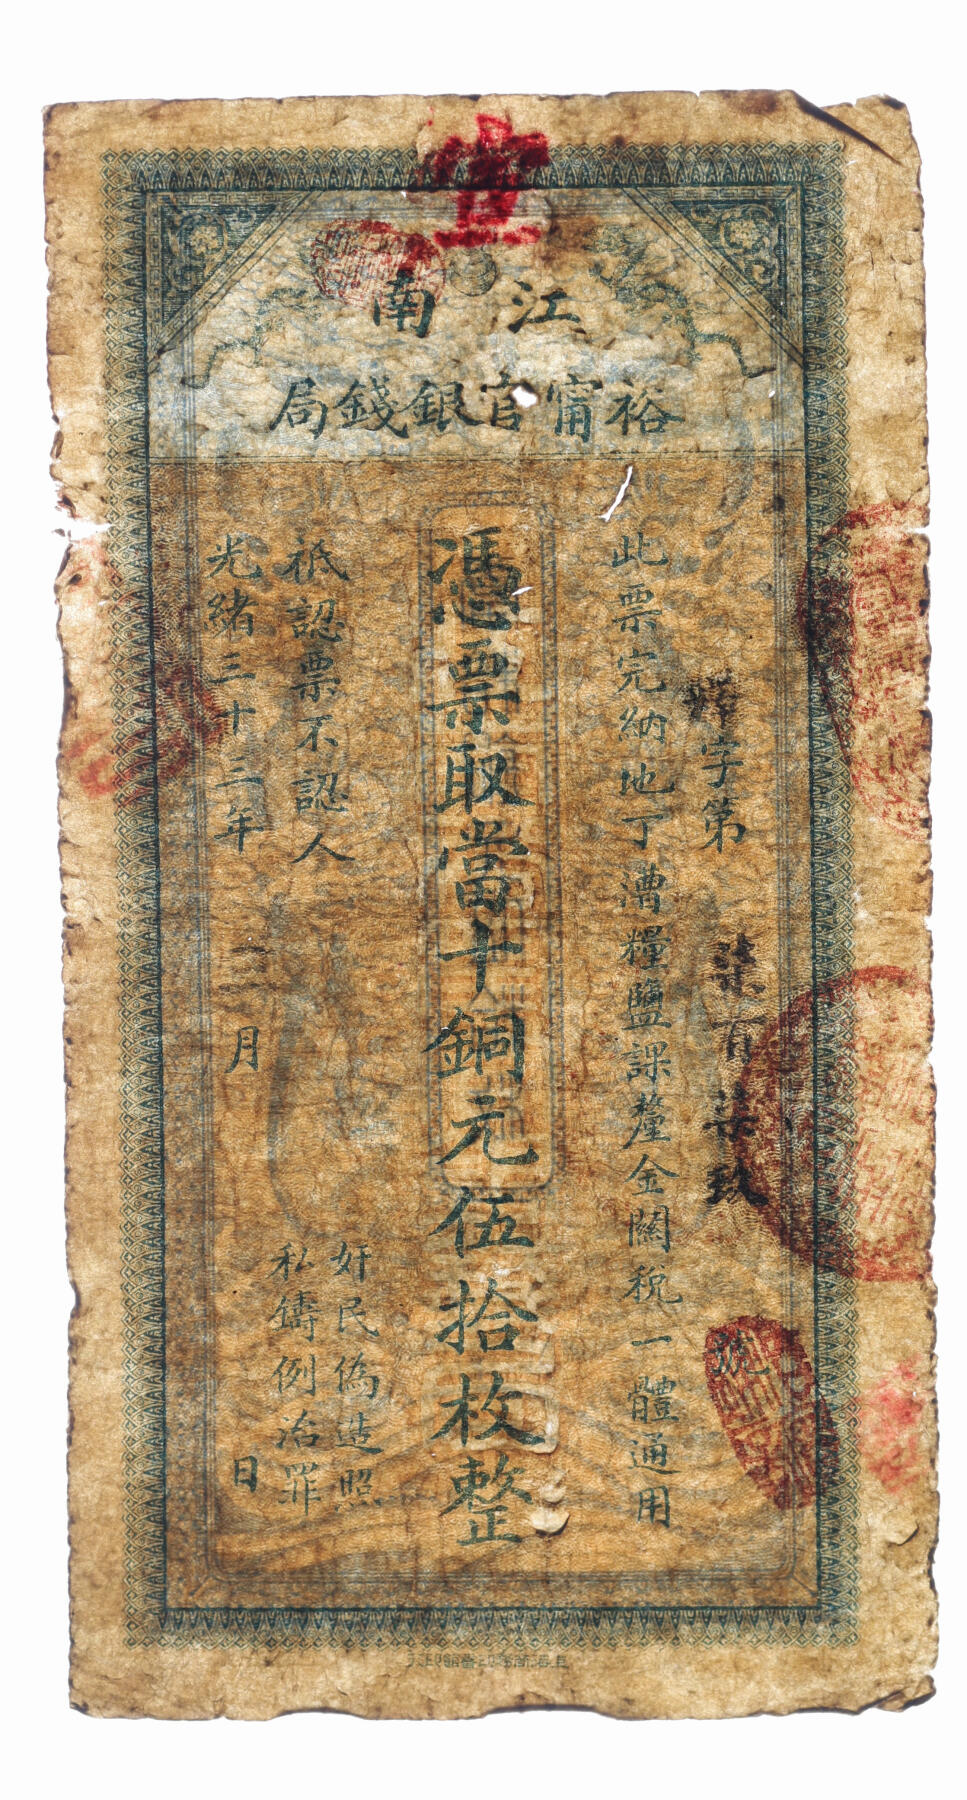 宜
江南
裕甯官銀錢局
字第
柒百柒玖
號
此票完納地丁漕糧鹽課釐金關稅一體通用
憑票取當十銅元伍拾枚整
奸民偽造照
私鑄例治罪
祇認票不認人
光緒三十三年
月
日